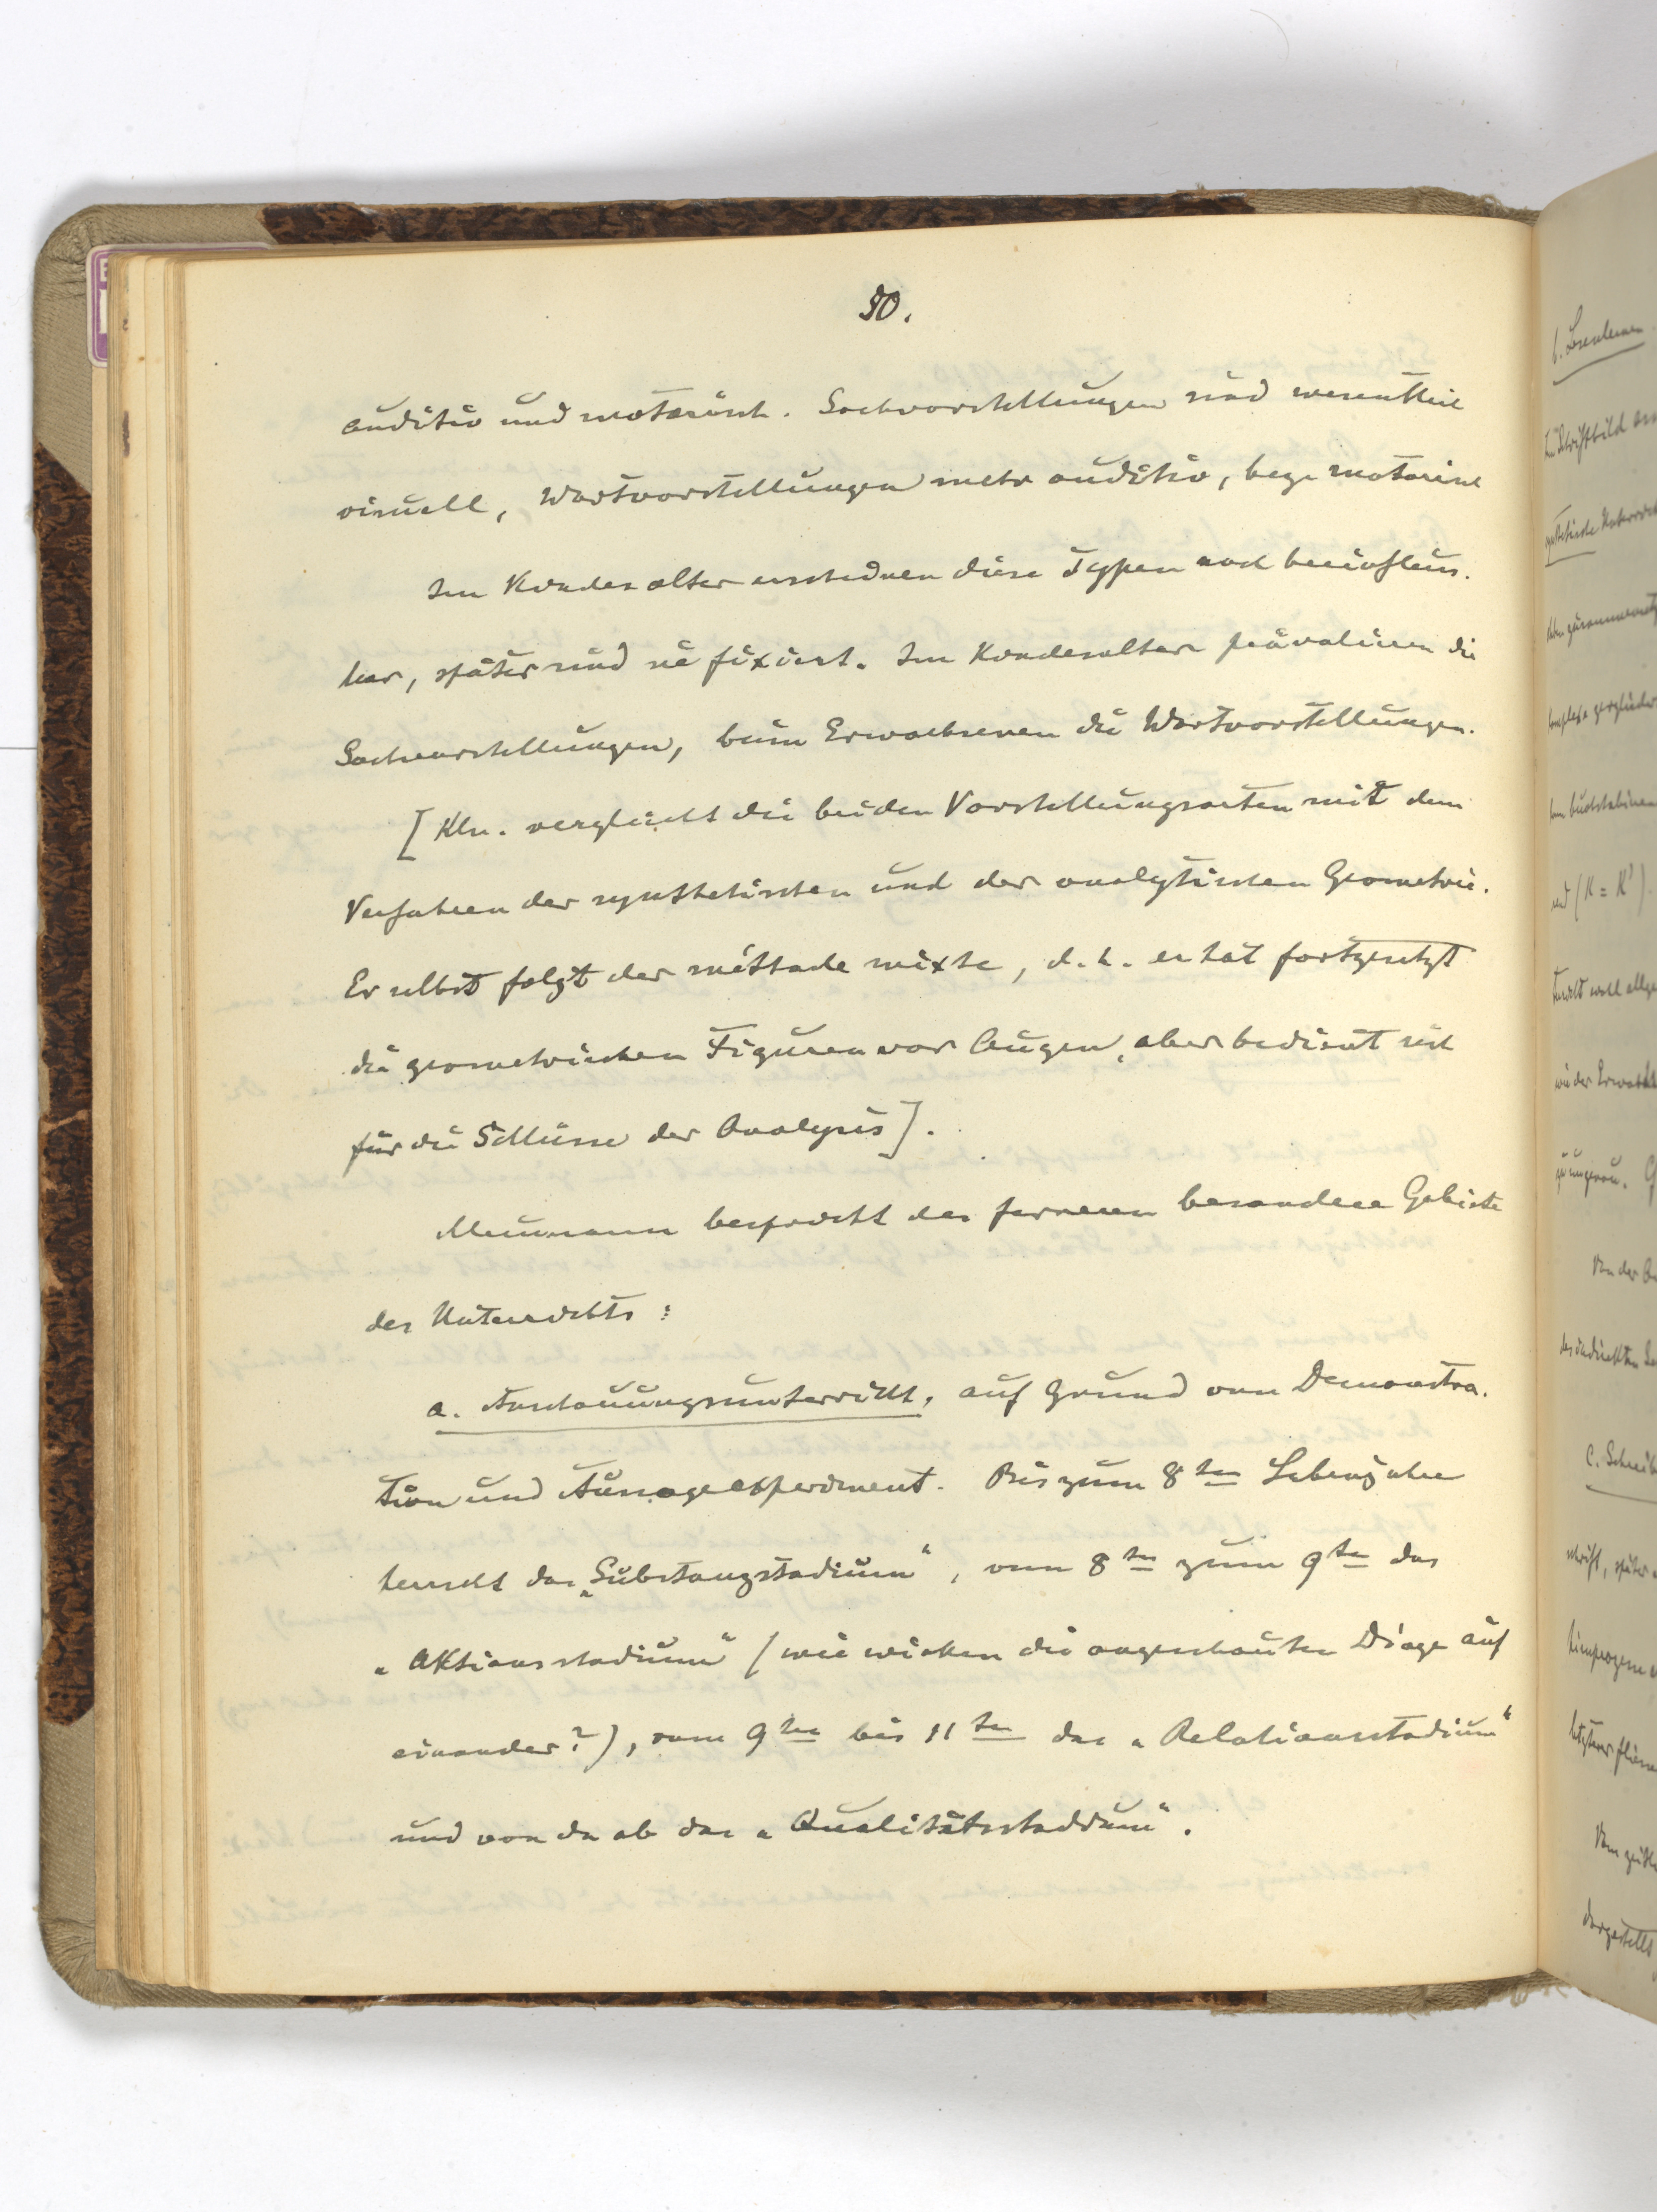 50.
auditiv und motorisch. Sachvorstellungen sind wesentlich
visuell, Wortvorstellungen mehr auditiv, bezw motorisch
Im Kindesalter erscheinen diese Typen noch beeinfluss-
bar, später sind sie fixiert. Im Kindesalter prävalieren die
Sachvorstellungen, beim Erwachsenen die Wortvorstellungen.
[Kln. vergleicht die beiden Vorstellungsarten mit dem
Verfahren der synthetischen und der analytischen Geometrie.
Er selbst folgt der méthode mixte, d.h. er hat fortgesetzt
die geometrischen Figuren vor Augen, aber bedient sich
für die Schlüsse der Analysis].
Meumann bespricht des ferneren besondere Gebiete
des Unterrichts:
a. Anschauungsunterricht, auf Grund von Demonstra-
tion und Aussageexperiment. Bis zum 8ten Lebensjahre
herrscht das „Substanzstadium“, vom 8ten zum 9ten das
„Aktionsstadium“ (wie wirken die angeschauten Dinge auf
einander?), vom 9ten bis 11ten das „Relationsstadium“
und von da ab das „Qualitätsstadium“.
b. Lesenlernen